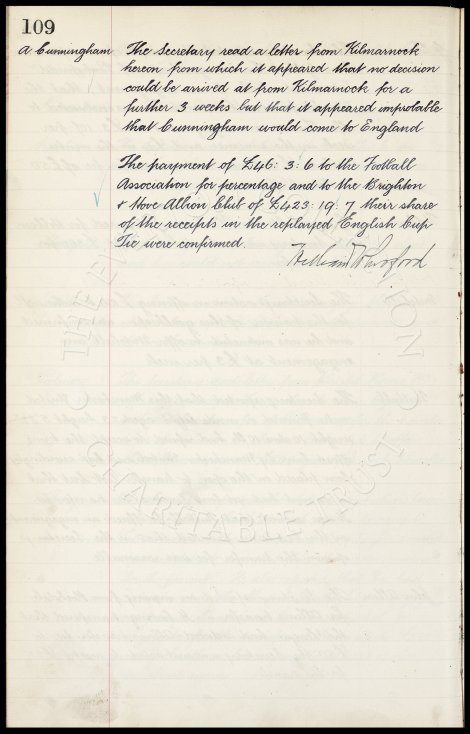 109
A Cunningham The Secretary read a letter from Kilmarnock
hereon from which it appeared that no decision
could be arrived at from Kilmarnock for a
further 3 weeks but that it appeared improbable
that Cunningham would come to England
The payment of £46: 3: 6 to the Football
Association for percentage and to the Brighton
& Hove Albion Club of £423: 19: 7 their share
of the receipts in the replayed English Cup
Tie were confirmed.
CHARITABLE TRUST